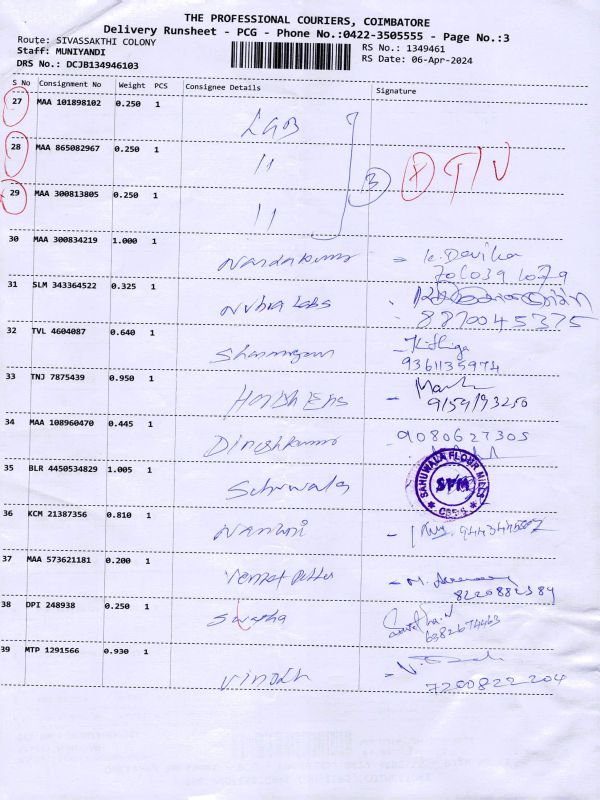 THE PROFESSIONAL COURIERS, COIMBATORE
Delivery Runsheet - PCG - Phone No.:0422-3505555 - Page No.:3
Route: SIVASSAKTHI COLONY
Staff: MUNIYANDI RS No.: 1349461
DRS No.: DCJB134946103 RS Date: 06-Apr-2024
S No Consignment No Weight PCS Consignee Details Signature
27 MAA 101898102 0.250 1 LGB
28 MAA 865082967 0.250 1 11 3
29 MAA 300813805 0.250 1 11
30 MAA 300834219 1.000 1 Nandakumar = K. Devika
702039 1079
31 SLM 343364522 0.325 1 Nubra Labs
8870045375
32 TVL 4604087 0.640 1 Shanmugam - Kithiga
9361135974
33 TNJ 7875439 0.950 1 Harish Ens
9159193250
34 MAA 108960470 0.445 1 Dineshkumar 9080627305
35 BLR 4450534829 1.005 1
SAHUWALA FLOUR MILLS
SFM
36 KCM 21387356 0.810 1
37 MAA 573621181 0.200 1 - M.
38 DPI 248938 0.250 1 Swatha
6382674463
39 MTP 1291566 0.930 1 Vinoth
7200822204